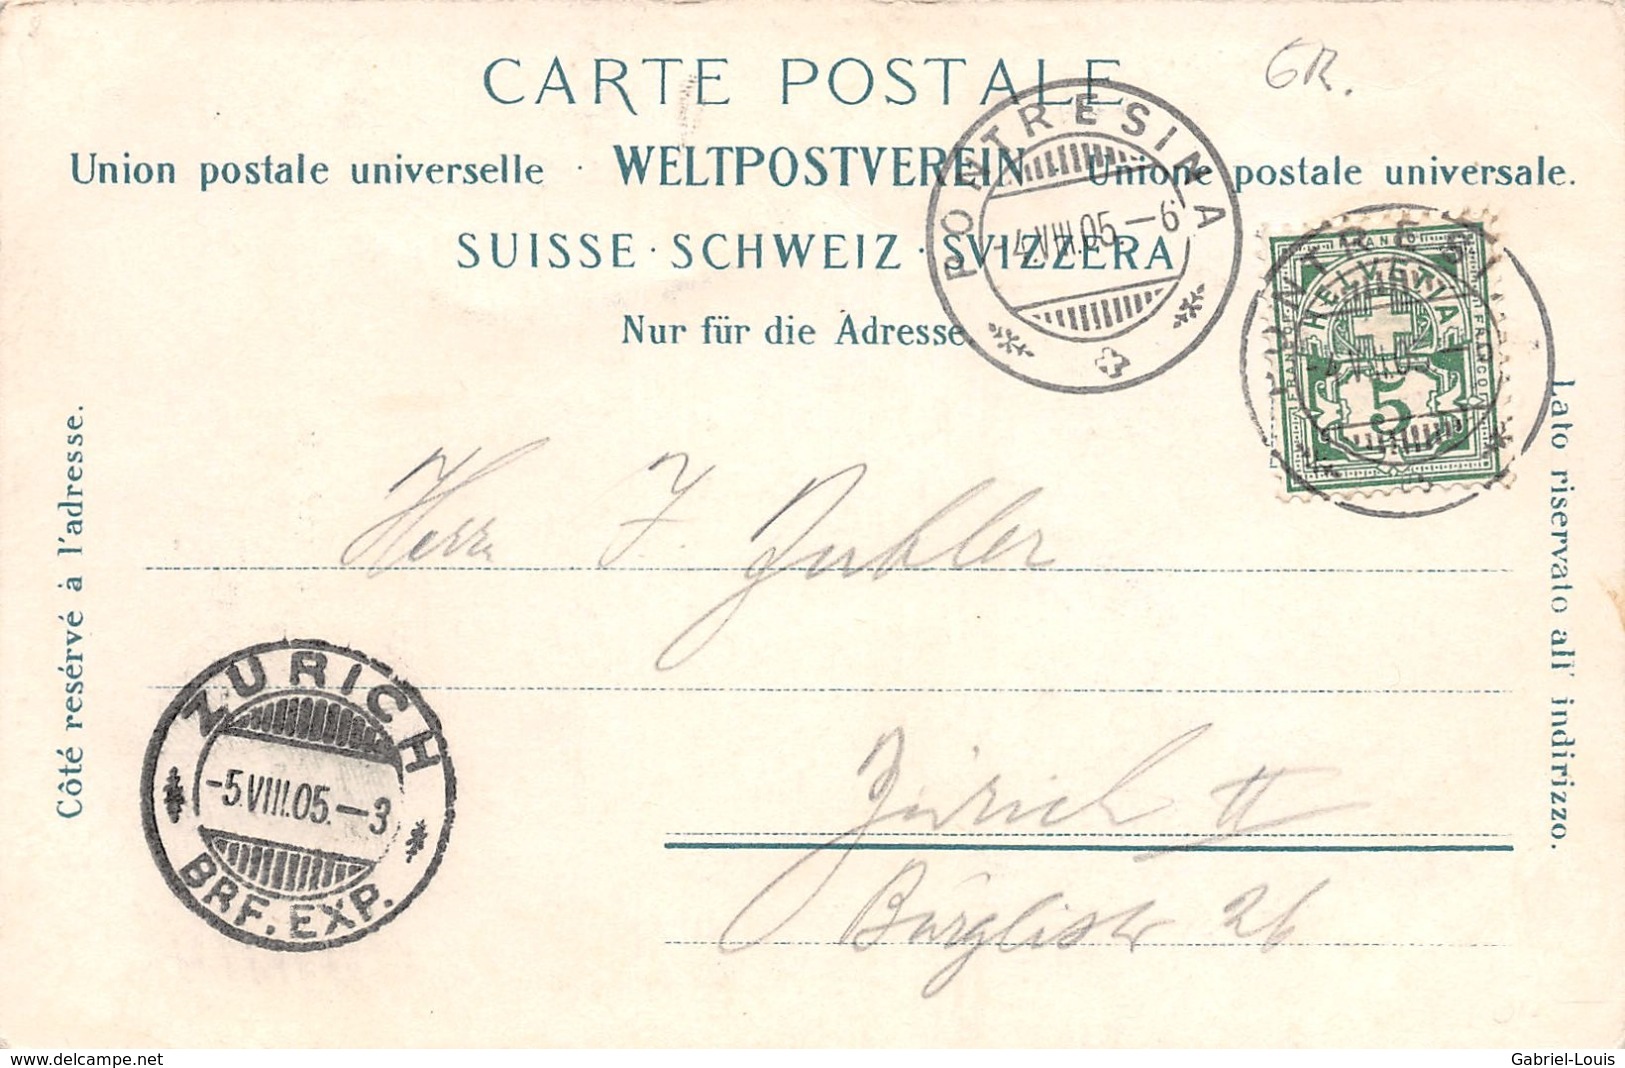 GR.
CARTE POSTALE
Union postale universelle · WELTPOSTVEREIN Unione postale universale.
SUISSE · SCHWEIZ · SVIZZERA
Nur für die Adresse.
PONTRESINA
-4.VIII.05.-6
PONTRESINA
-4.VIII.05.
FRANCO
FRANCO
FRANCO
HELVETIA
5
Côté resérvé à l'adresse.
Lato riservato all' indirizzo.
Herrn J.
Zürich II
Bürglistr 26
ZÜRICH
-5.VIII.05.-3
BRF. EXP.
www.delcampe.net
Gabriel-Louis